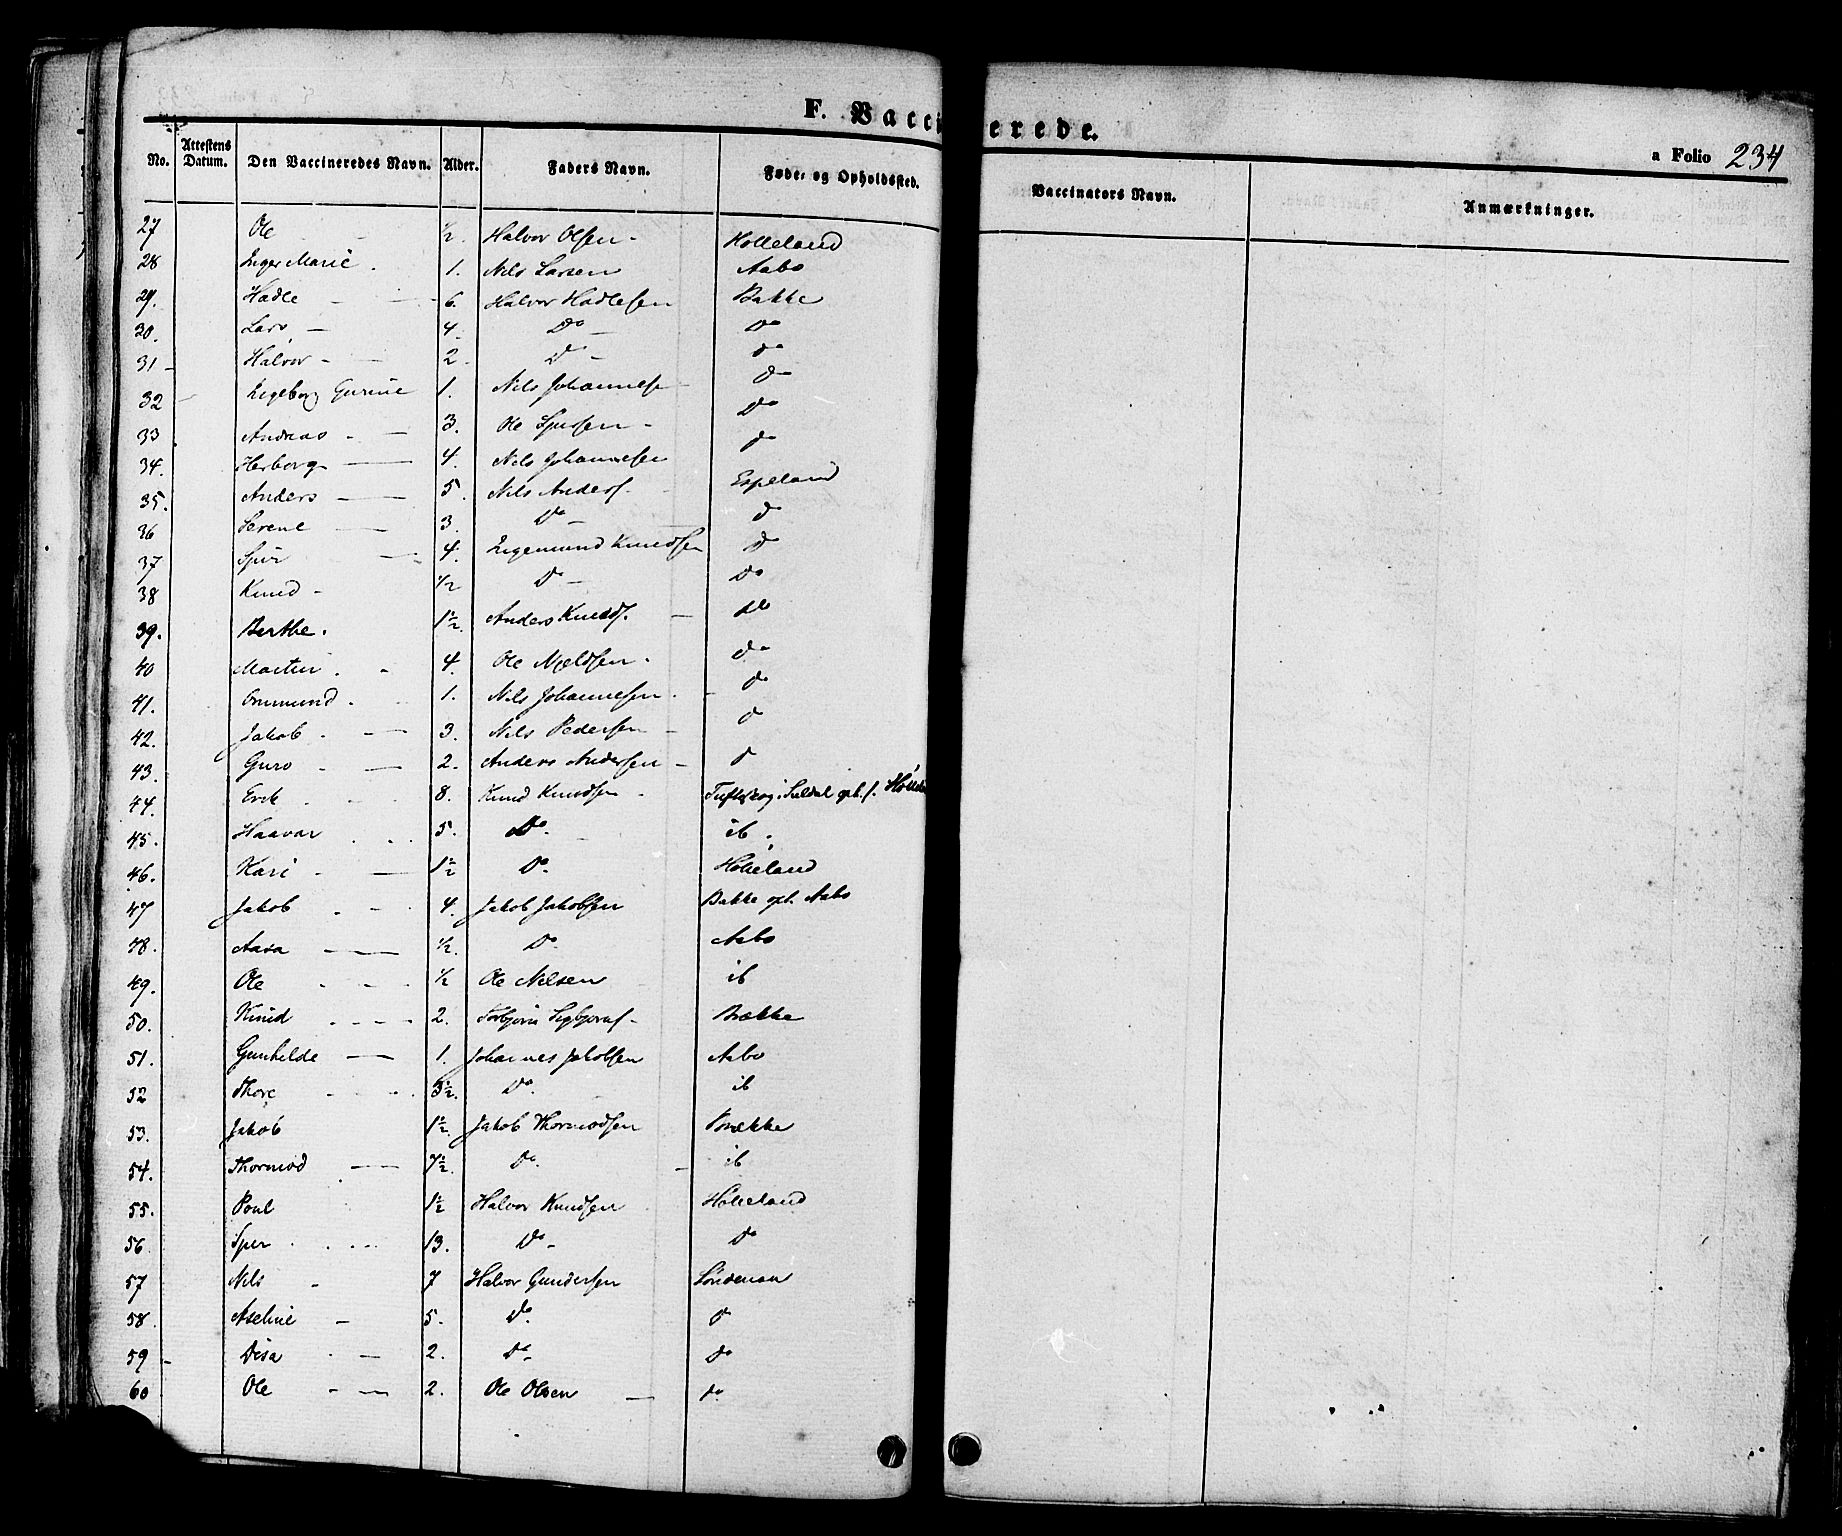 F. Vaccinerede.
a Folio 234
No. Attestens Datum. Den Vaccineredes Navn. Alder. Faders Navn. Føde- og Opholdssted. Vaccinators Navn. Anmærkninger.
27 Ole ½. Halvor Olsen Holleland
28 Inger Marie. 1. Nils Larsen Aabø
29. Hadle 6. Halvor Hadlesen Bakke
30. Lars 4. Do Do
31 Halvor 2. Do do
32 Ingeborg Gurine 1. Nils Johannesen do
33 Andreas 3. Ole Sjursen Do
34. Herborg 4. Nils Johannesen do
35. Anders 5. Nils Anders. Espeland
36 Serene 3. Do d
37 Sjur 4. Ingemund Knudsen d
38 Knud ½ Do Do
39. Berthe. 1½. Anders Knuds. do
40 Martin. 4. Ole Njeldsen. do
41. Ommund. 1. Nils Johannesen. do
42. Jakob. 3. Nils Pedersen d
43. Guro 2. Anders Andersen d
44. Erik 8. Knud Knudsen Tufteskog i Suldal oph. f.
45. Haavar 5. Do. ib.
46. Kari 1½ Do. Holleland
47 Jakob 4. Jakob Jakobsen Bakke oph. Aabø
48. Aasa ½. Do. Aabø
49. Ole ½ Ole Nilsen ib
50. Knud 2. Torbjørn Sigbjørns. Brække
51. Gunhilde 1. Johannes Jakobsen Aabø
52 Thore 3½. Do. ib
53. Jakob 1½. Jakob Thormodsen Brække
54. Thormod 7½. Do. ib
55. Poul 1½ Halvor Knudsen Holleland
56 Sper 13. Do Do
57 Nils 7 Halvor Gundersen Søndenaa
58. Aseline 5. Do. d
59 Disa 2. Do do
60 Ole 2. Ole Olsen do